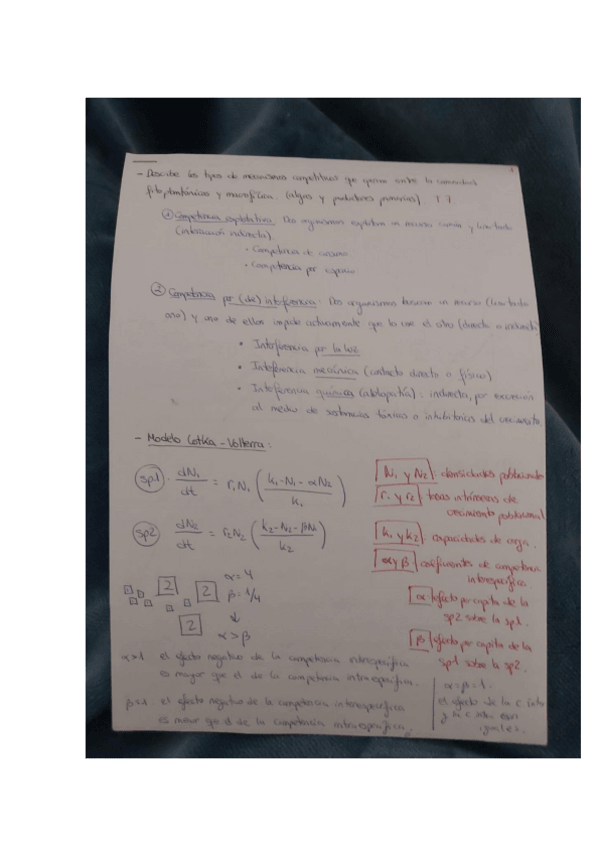 - Describe los tipos de mecanismos competitivos que operan entre la comunidad
fitoplanctónica y macrofítica. (algas y productores primarios). T 7
① Competencia explotativa. Dos organismos explotan un recurso común y limitado
(interacción indirecta).
· Competencia de consumo
· Competencia por espacio
② Competencia por (de) interferencia: Dos organismos buscan un recurso (limitado
o no) y uno de ellos impide activamente que lo use el otro (directa o indirecta)
• Interferencia por la luz
• Interferencia mecánica (contacto directo o físico)
• Interferencia química (alelopatía): indirecta, por excreción
al medio de sustancias tóxicas o inhibitorias del crecimiento.
- Modelo Lotka-Volterra:
sp1 dN₁/dt = r₁N₁ (k₁-N₁-αN₂ / k₁)
sp2 dN₂/dt = r₂N₂ (k₂-N₂-βN₁ / k₂)
N₁ y N₂: densidades poblacionales
r₁ y r₂: tasas intrínsecas de
crecimiento poblacional
k₁ y k₂: capacidades de carga.
α y β: coeficientes de competencia
interespecífica.
α efecto per capita de la
sp2 sobre la sp1.
β efecto per capita de la
sp1 sobre la sp2.
2 2 2
α = 4
β = 1/4
↓
α > β
α>1 el efecto negativo de la competencia interespecífica
es mayor que el de la competencia intraespecífica.
β<1 el efecto negativo de la competencia interespecífica
es menor que el de la competencia intraespecífica.
α=β=1.
el efecto de la C inter
y la C intra son
iguales.